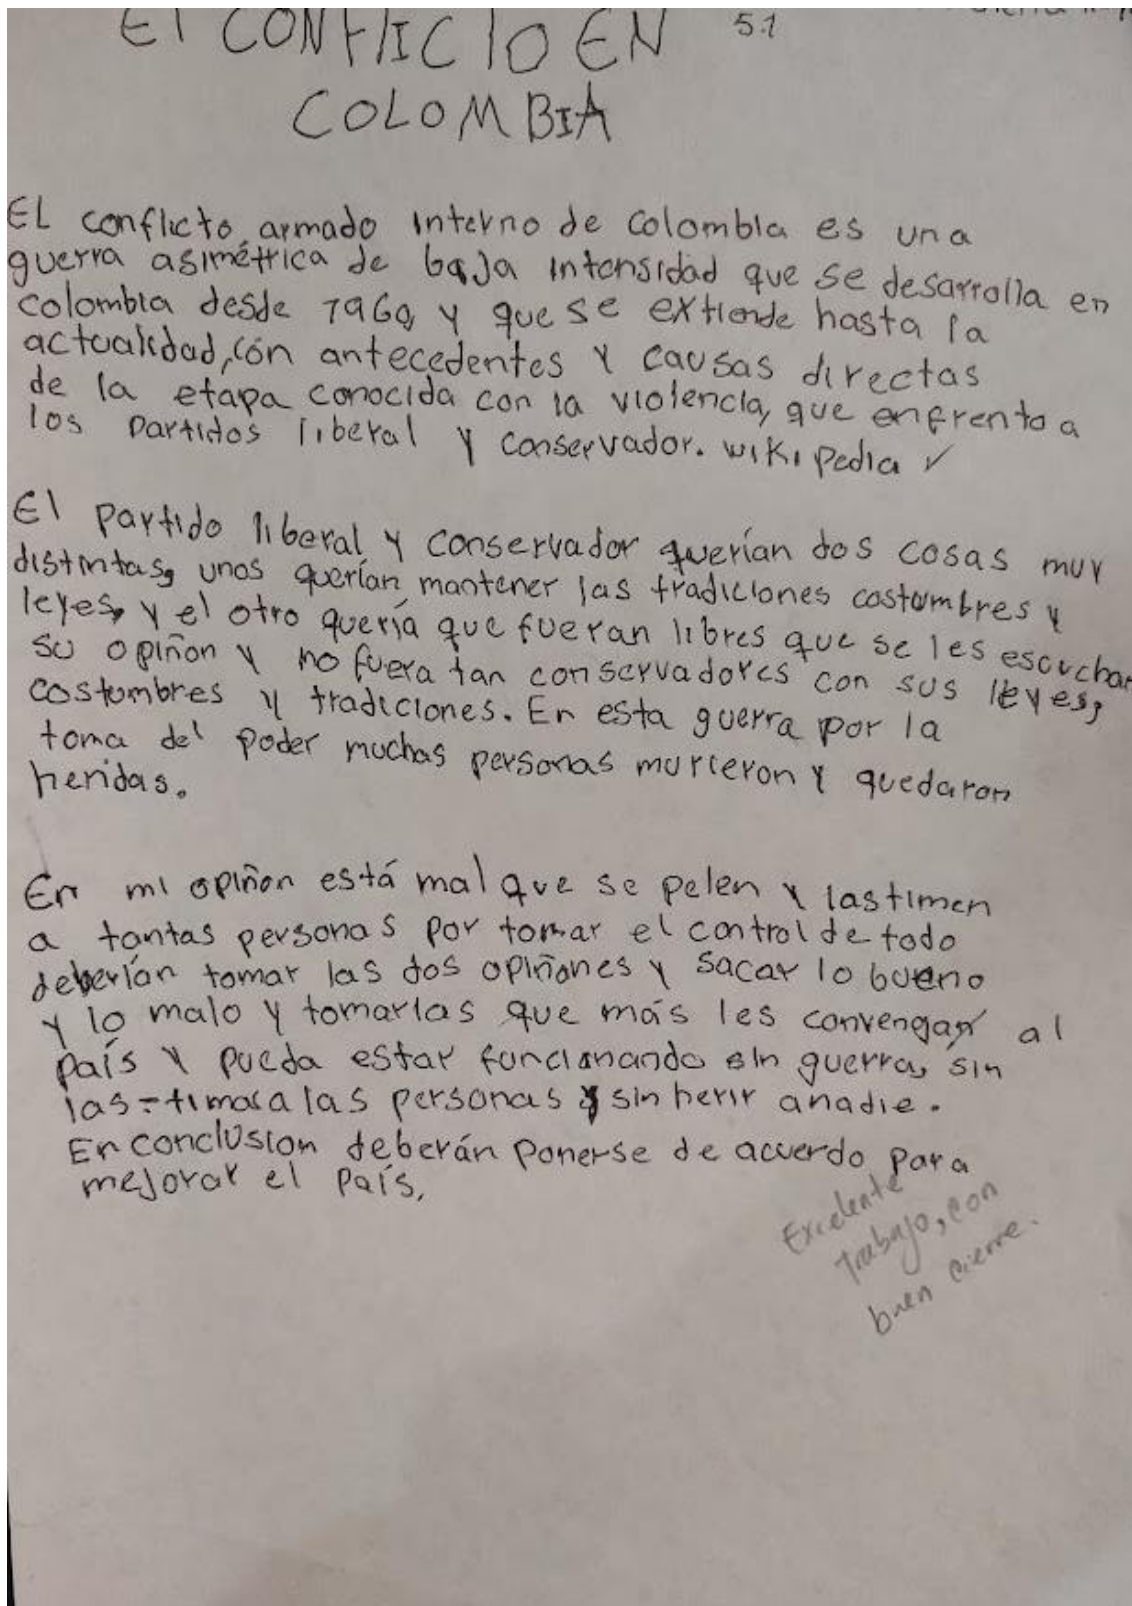 El CONFlICTO EN 5.1
COLOMBIA
EL conflicto armado interno de colombia es una
guerra asimétrica de baja intensidad que se desarrolla en
colombia desde 1960, y que se extiende hasta la
actualidad, con antecedentes y causas directas
de la etapa conocida con la violencia, que enfrento a
los partidos liberal y conservador. wikipedia ✓
El partido liberal y conservador querían dos cosas muy
distintas, unos querían mantener las tradiciones costumbres y
leyes, y el otro quería que fueran libres que se les escuchar
su opiñon y no fuera tan conservadores con sus leyes,
costumbres y tradiciones. En esta guerra por la
toma del poder muchas personas murieron y quedaron
heridas.
En mi opiñon está mal que se pelen y lastimen
a tantas personas por tomar el control de todo
deberían tomar las dos opiñones y sacar lo bueno
y lo malo y tomarlas que más les convengan al
país y pueda estar funcionando sin guerra, sin
las-timar a las personas y sin herir anadie.
En conclusion deberán ponerse de acuerdo para
mejorar el país.
Excelente
Trabajo, con
buen cierre.